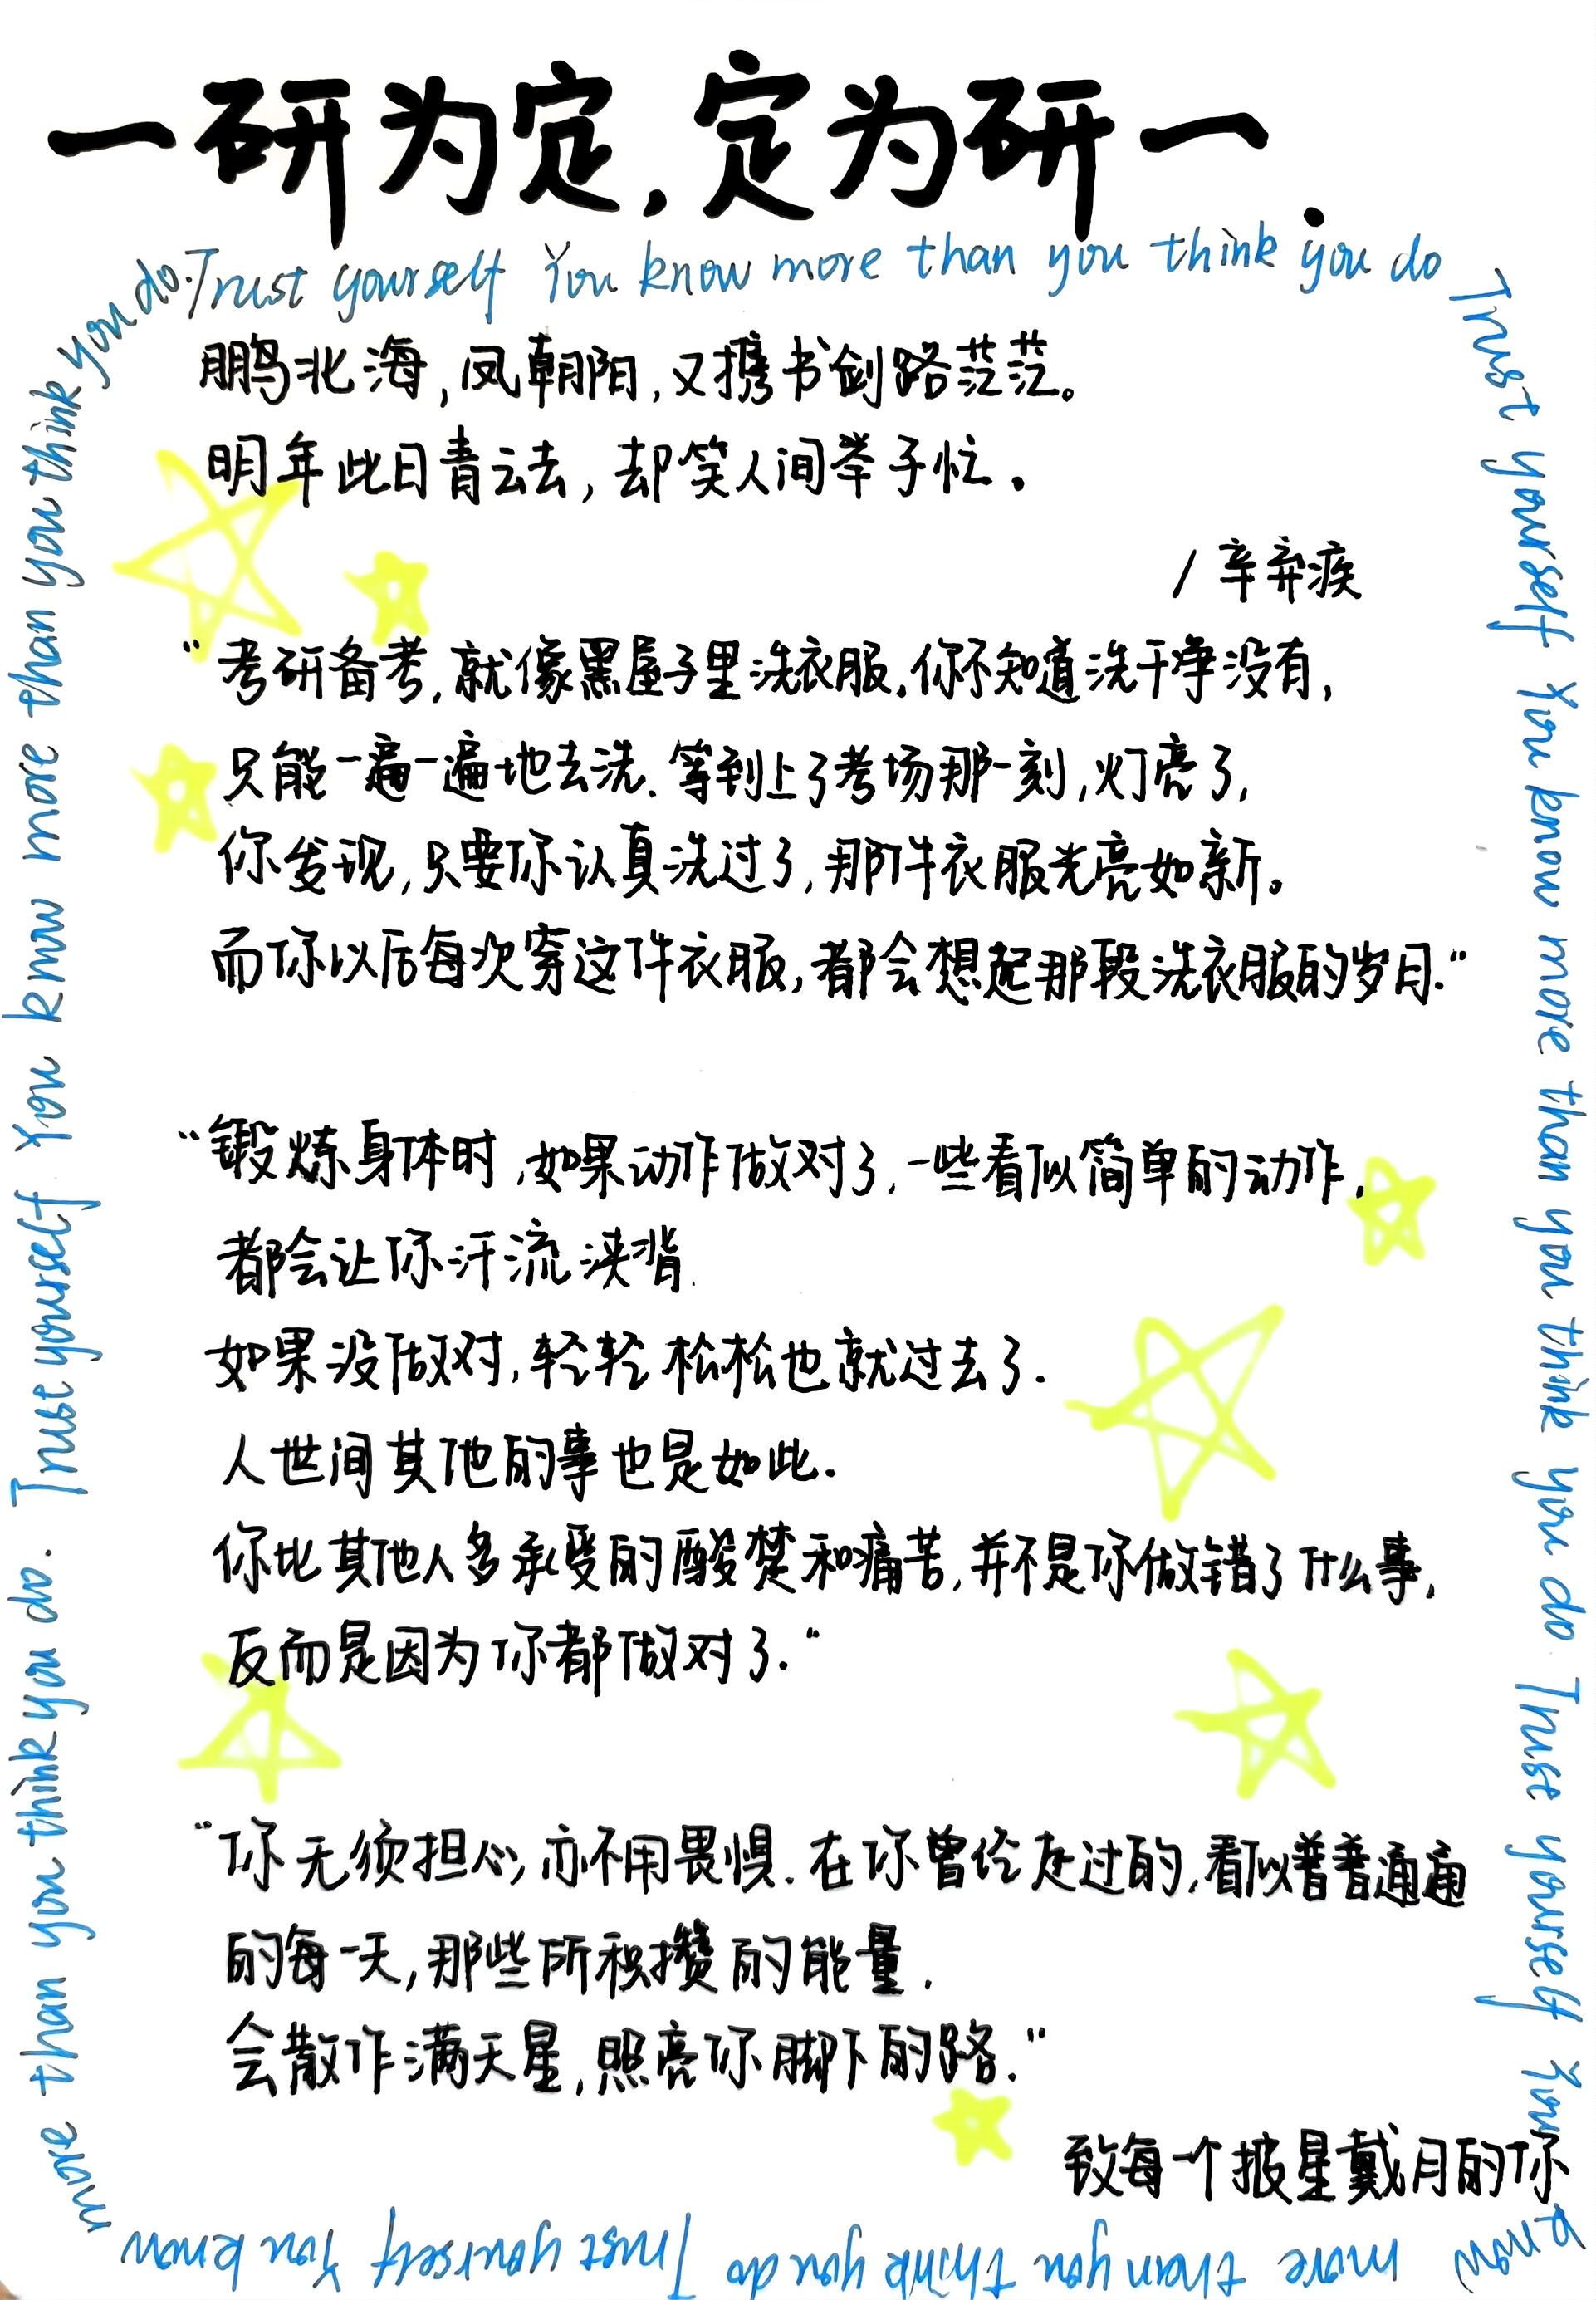 一研为定,定为研一.
Trust yourself You know more than you think you do
Trust yourself You know more than you think you do Trust yourself You know
more than you think you do Trust yourself You know
more than you think you do. Trust yourself You know more than you think you do.
鹏北海,凤朝阳,又携书剑路茫茫。
明年此日青云去,却笑人间举子忙.
/辛弃疾
“考研备考,就像黑屋子里洗衣服.你不知道洗干净没有,
只能一遍一遍地去洗.等到上了考场那一刻,灯亮了,
你发现,只要你认真洗过了,那件衣服光亮如新。
而你以后每次穿这件衣服,都会想起那段洗衣服的岁月.“
“锻炼身体时,如果动作做对了,一些看似简单的动作,
都会让你汗流浃背.
如果没做对,轻轻松松也就过去了.
人世间其他的事也是如此.
你比其他人多承受的酸楚和痛苦,并不是你做错了什么事,
反而是因为你都做对了.“
“你无须担心,亦不用畏惧.在你曾经走过的,看似普普通通
的每一天,那些所积攒的能量.
会散作满天星,照亮你脚下的路.“
致每一个披星戴月的你